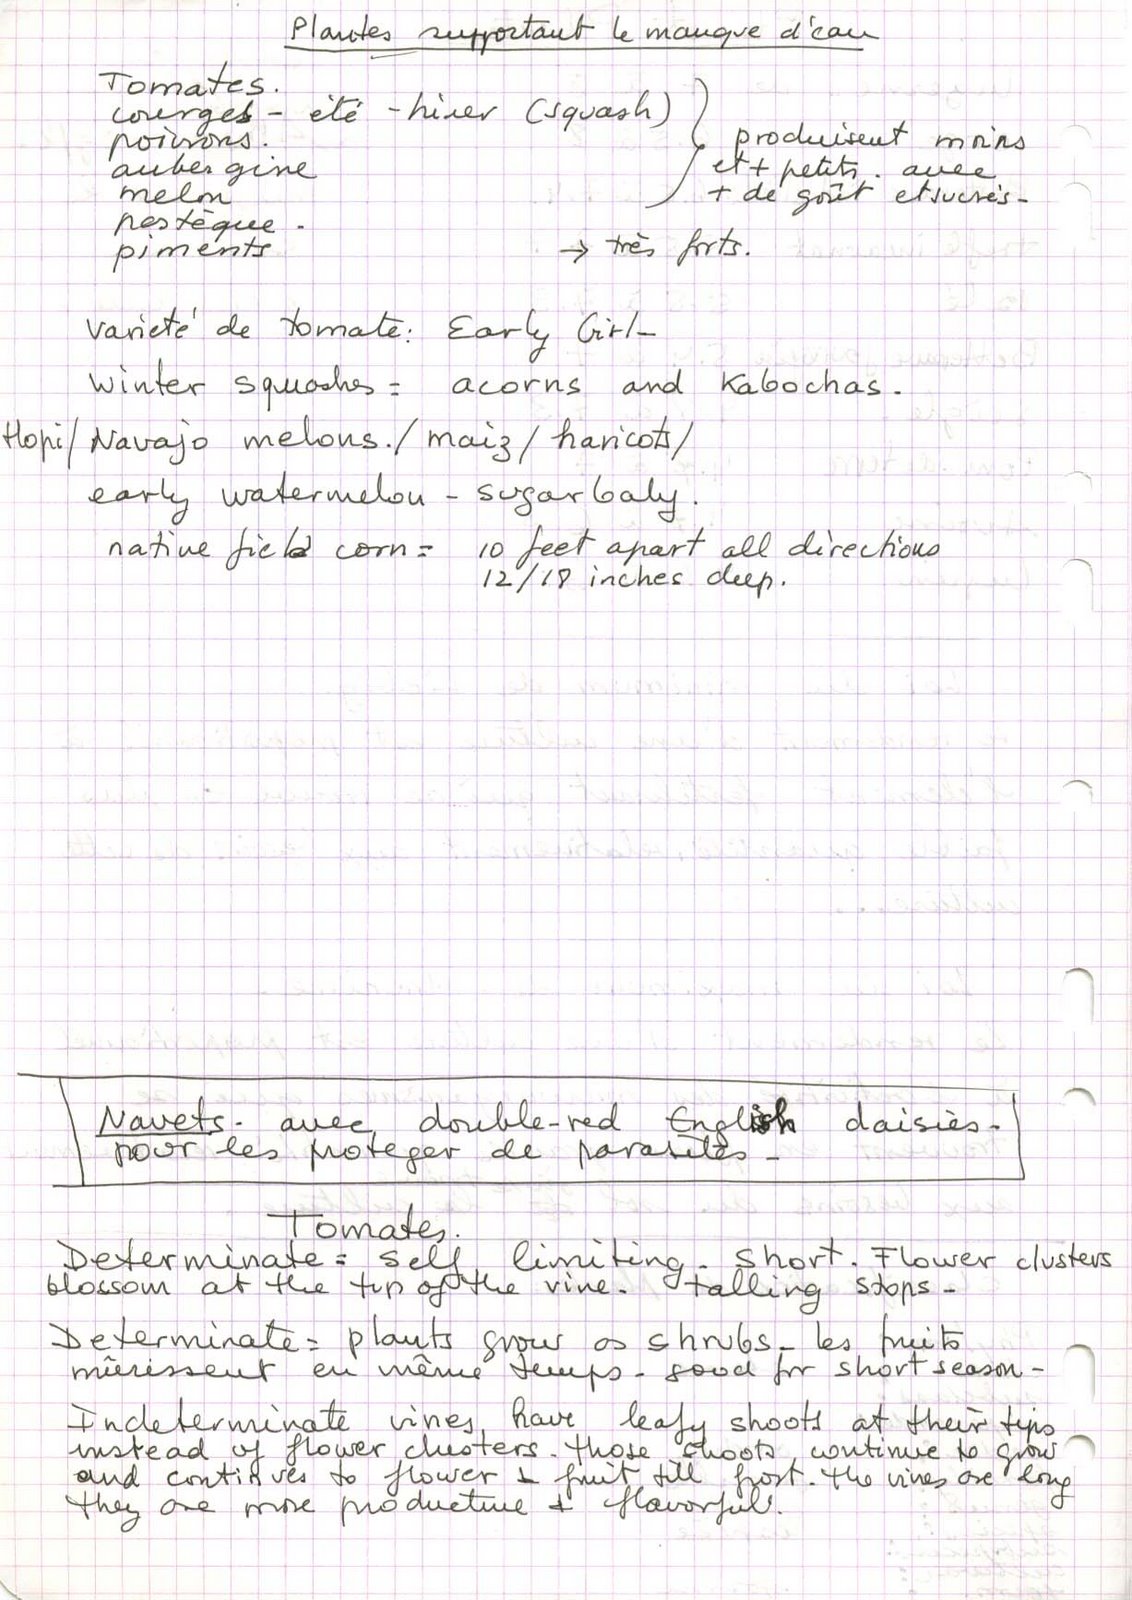 Plantes supportant le manque d'eau
Tomates.
courges - été - hiver (squash)
poivrons.
aubergine
melon
pastèque.
piments → très forts.
produisent moins
et + petits. avec
+ de goût et sucrés-
Varieté de tomate: Early Girl-
winter squashes = acorns and Kabochas.
Hopi/Navajo melons./maiz/haricots/
early watermelon - sugarbaby.
native field corn = 10 feet apart all directions
12/18 inches deep.
Navets. avec double-red English daisies-
pour les proteger de parasites-
Tomates.
Determinate = self limiting. short. Flower clusters
blossom at the tip of the vine. talling stops-
Determinate = plants grow as shrubs- les fruits
mûrissent en même temps. good for short season-
Indeterminate vines have leafy shoots at their tips
instead of flower clusters. those shoots continue to grow
and continues to flower + fruit till frost. the vines are long
they are more productive + flavorful.